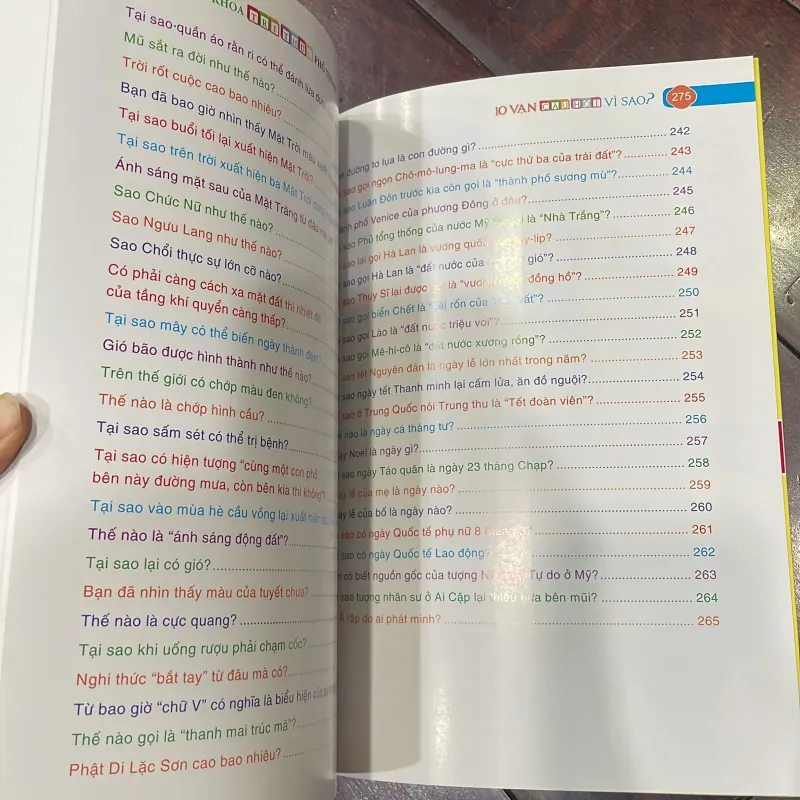 KHOA TRI THỨC
Tại sao quần áo rằn ri có thể đánh lừa
Mũ sắt ra đời như thế nào?
Trời rốt cuộc cao bao nhiêu?
Bạn đã bao giờ nhìn thấy Mặt Trời màu
Tại sao buổi tối lại xuất hiện Mặt Trời?
Tại sao trên trời xuất hiện ba Mặt Trời
Ánh sáng mặt sau của Mặt Trăng từ đâu
Sao Chức Nữ như thế nào?
Sao Ngưu Lang như thế nào?
Sao Chổi thực sự lớn cỡ nào?
Có phải càng cách xa mặt đất thì nhiệt độ
của tầng khí quyển càng thấp?
Tại sao mây có thể biến ngày thành đêm?
Gió bão được hình thành như thế nào?
Trên thế giới có chớp màu đen không?
Thế nào là chớp hình cầu?
Tại sao sấm sét có thể trị bệnh?
Tại sao có hiện tượng “cùng một con phố
bên này đường mưa, còn bên kia thì không?
Tại sao vào mùa hè cầu vồng lại xuất hiện
Thế nào là “ánh sáng động đất”?
Tại sao lại có gió?
Bạn đã nhìn thấy màu của tuyết chưa?
Thế nào là cực quang?
Tại sao khi uống rượu phải chạm cốc?
Nghi thức “bắt tay” từ đâu mà có?
Từ bao giờ “chữ V” có nghĩa là biểu hiện của
Thế nào gọi là “thanh mai trúc mã”?
Phật Di Lặc Sơn cao bao nhiêu?
10 VẠN CÂU HỎI VÌ SAO? 275
đường tơ lụa là con đường gì? 242
sao gọi ngọn Chô-mô-lung-ma là “cực thứ ba của trái đất”? 243
sao Luân Đôn trước kia còn gọi là “thành phố sương mù”? 244
phố Venice của phương Đông ở đâu? 245
sao Phủ tổng thống của nước Mỹ gọi là “Nhà Trắng”? 246
sao lại gọi Hà Lan là vương quốc 247
sao gọi Hà Lan là “đất nước của gió”? 248
sao Thụy Sĩ lại được đồng hồ”? 249
sao gọi biển Chết là “cái rốn của 250
sao gọi Lào là “đất nước triệu voi”? 251
sao gọi Mê-hi-cô là “đất nước xương rồng”? 252
sao tết Nguyên đán là ngày lễ lớn nhất trong năm? 253
sao ngày tết Thanh minh lại cấm lửa, ăn đồ nguội? 254
sao ở Trung Quốc nói Trung thu là “Tết đoàn viên”? 255
nào là ngày cá tháng tư? 256
Noel là ngày gì? 257
sao ngày Táo quân là ngày 23 tháng Chạp? 258
lễ của mẹ là ngày nào? 259
lễ của bố là ngày nào? 260
sao có ngày Quốc tế phụ nữ 8 tháng 3? 261
sao có ngày Quốc tế Lao động? 262
có biết nguồn gốc của tượng Tự do ở Mỹ? 263
sao tượng nhân sư ở Ai Cập lại thiếu bên mũi? 264
rập do ai phát minh? 265